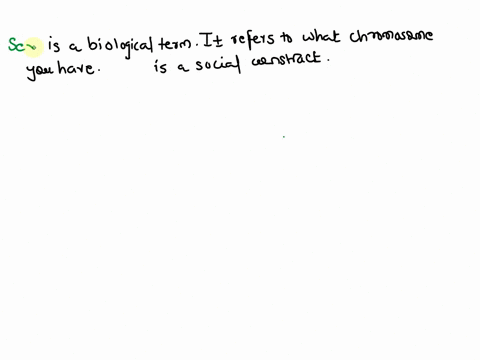 Sex is a biological term. It refers to what chromosome
you have. is a social constract.